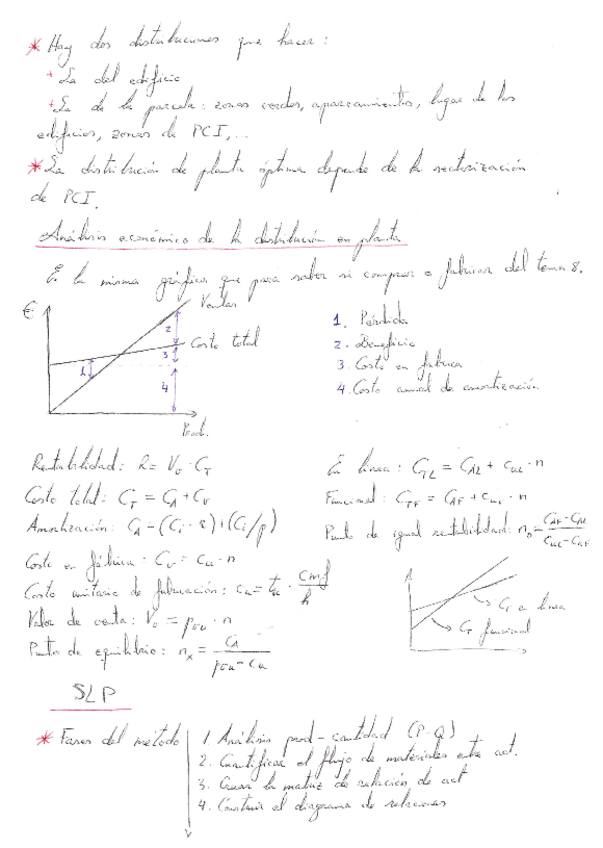 * Hay dos distribuciones que hacer:
+ La del edificio
+ La de la parcela: zonas verdes, aparcamientos, lugar de los
edificios, zonas de PCI,...
* La distribución de planta óptima depende de la sectorización
de PCI.
Análisis económico de la distribución en planta
Es la misma gráfica que para saber si comprar o fabricar del tema 8.
€
Ventas
Costo total
1
2
3
4
Prod.
1. Pérdida
2. Beneficio
3. Costo en fábrica
4. Costo anual de amortización
Rentabilidad: R = Vo - CT
Costo total: CT = CA + CV
Amortización: CA = (Ci · r) + (Ci/p)
Costo en fábrica: CV = cu · n
Costo unitario de fabricación: cu = tu · cmf/h
Valor de venta: Vo = pvu · n
Punto de equilibrio: nx = CA / pvu - cu
En línea: CTL = CAL + cuL · n
Funcional: CTF = CAF + cuF · n
Punto de igual rentabilidad: no = CAF - CAL / cuL - cuF
CT en línea
CT funcional
SLP
* Fases del método
1. Análisis prod-cantidad (P-Q)
2. Cuantificar el flujo de materiales entre act.
3. Crear la matriz de relación de act
4. Construir el diagrama de relaciones